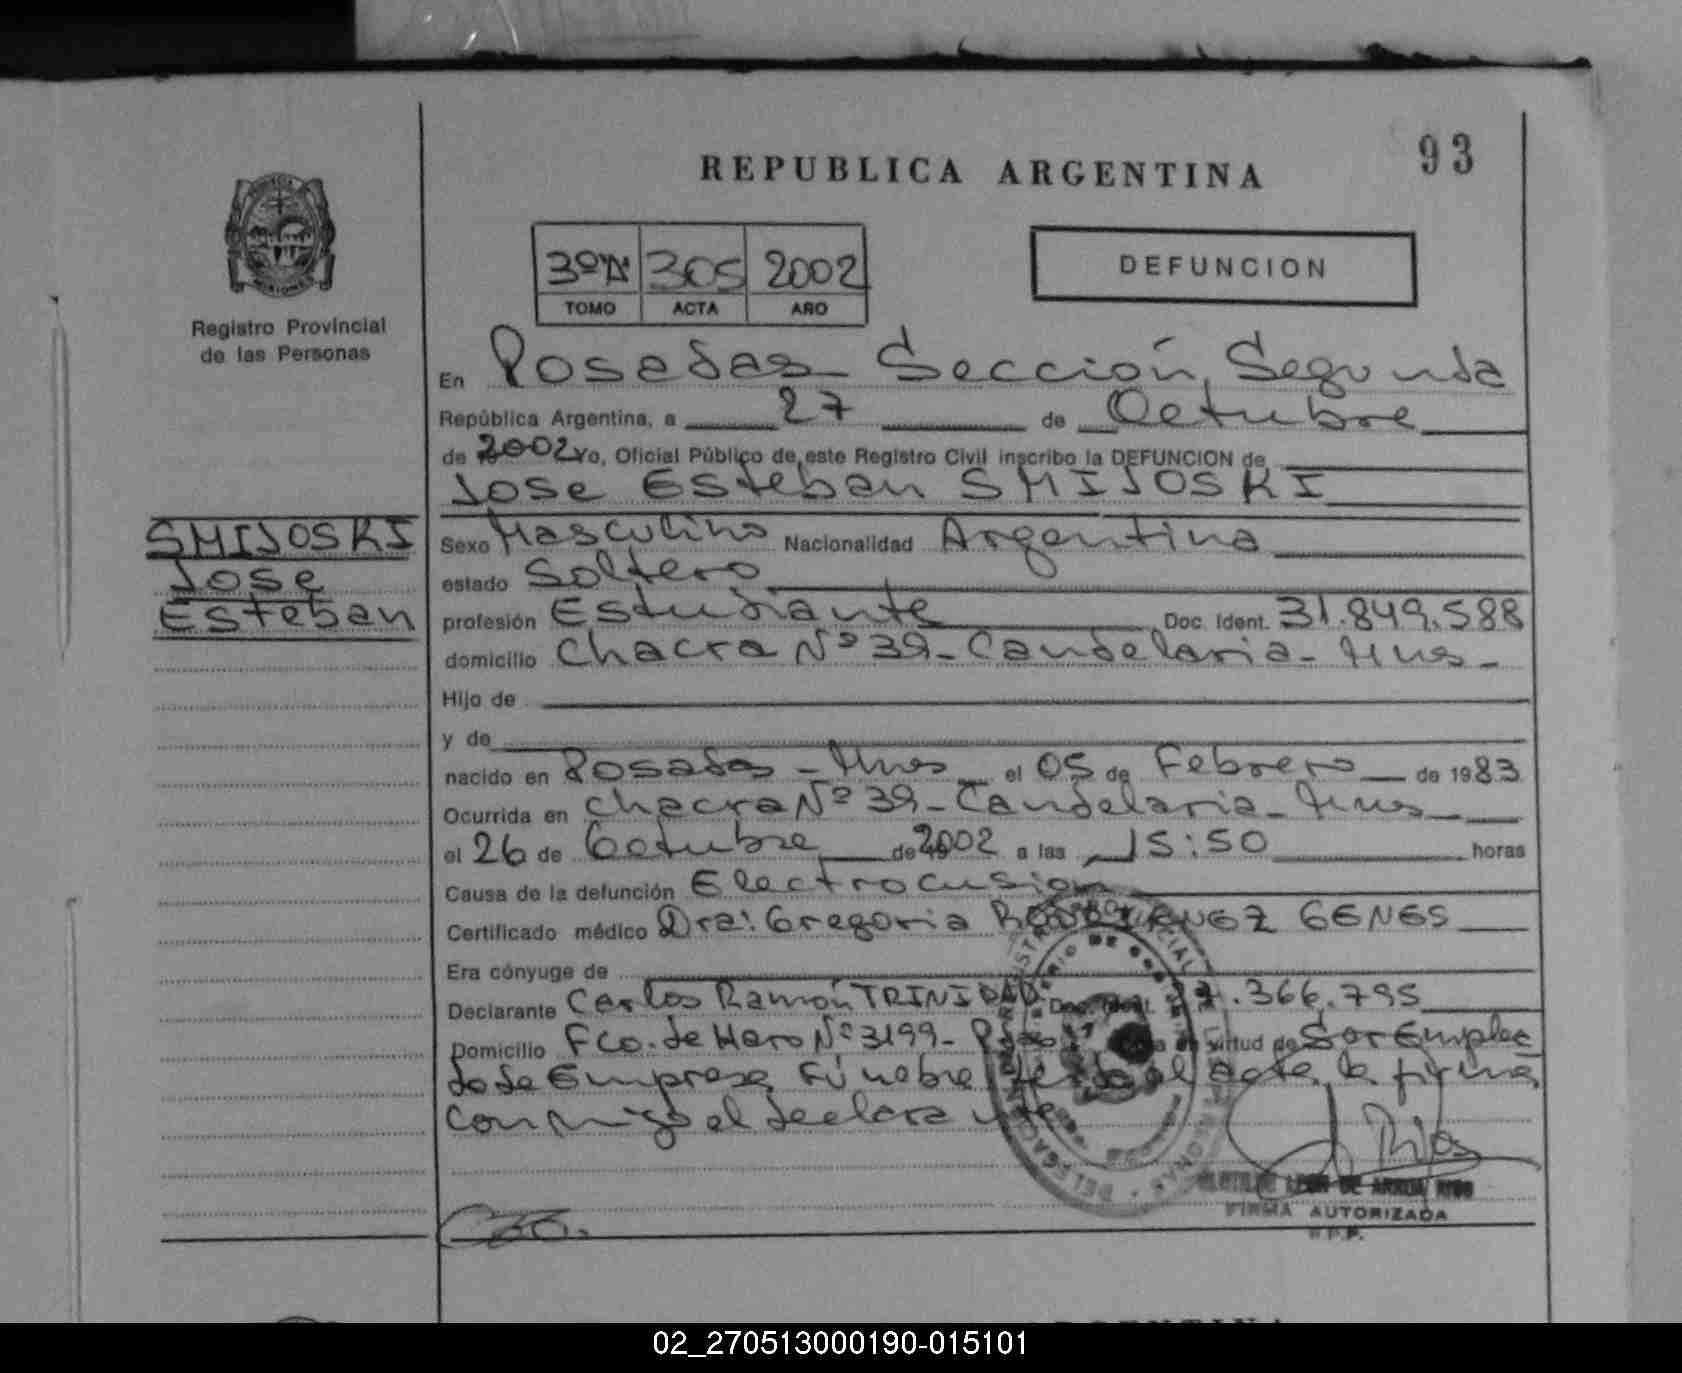 93
REPUBLICA ARGENTINA
3º"A" 305 2002
TOMO ACTA AÑO
DEFUNCION
MISIONES
Registro Provincial
de las Personas
En Posadas Sección Segunda
República Argentina, a 27 de Octubre
de 2002 Yo, Oficial Público de este Registro Civil inscribo la DEFUNCION de
Jose Esteban SMIJOSKI
SMIJOSKI
Jose
Esteban
Sexo Masculino Nacionalidad Argentina
estado Soltero
profesión Estudiante Doc. Ident. 31.849.588
domicilio Chacra Nº 39 - Candelaria - Mnes -
Hijo de
y de
nacido en Posadas - Mnes el 05 de Febrero de 1983
Ocurrida en Chacra Nº 39 - Candelaria - Mnes
el 26 de Octubre de 2002 a las 15:50 horas
Causa de la defunción Electrocusión
Certificado médico Dra: Gregoria RODRIGUEZ GENES
Era cónyuge de
Declarante Carlos Ramón TRINIDAD Doc. Ident. .366.795
Domicilio Fco. de Haro Nº 3199 - virtud de Ser Emplea
do de Empresa Fúnebre el acta la firma
conmigo el declarante
FIRMA AUTORIZADA
R.P.P.
02_270513000190-015101